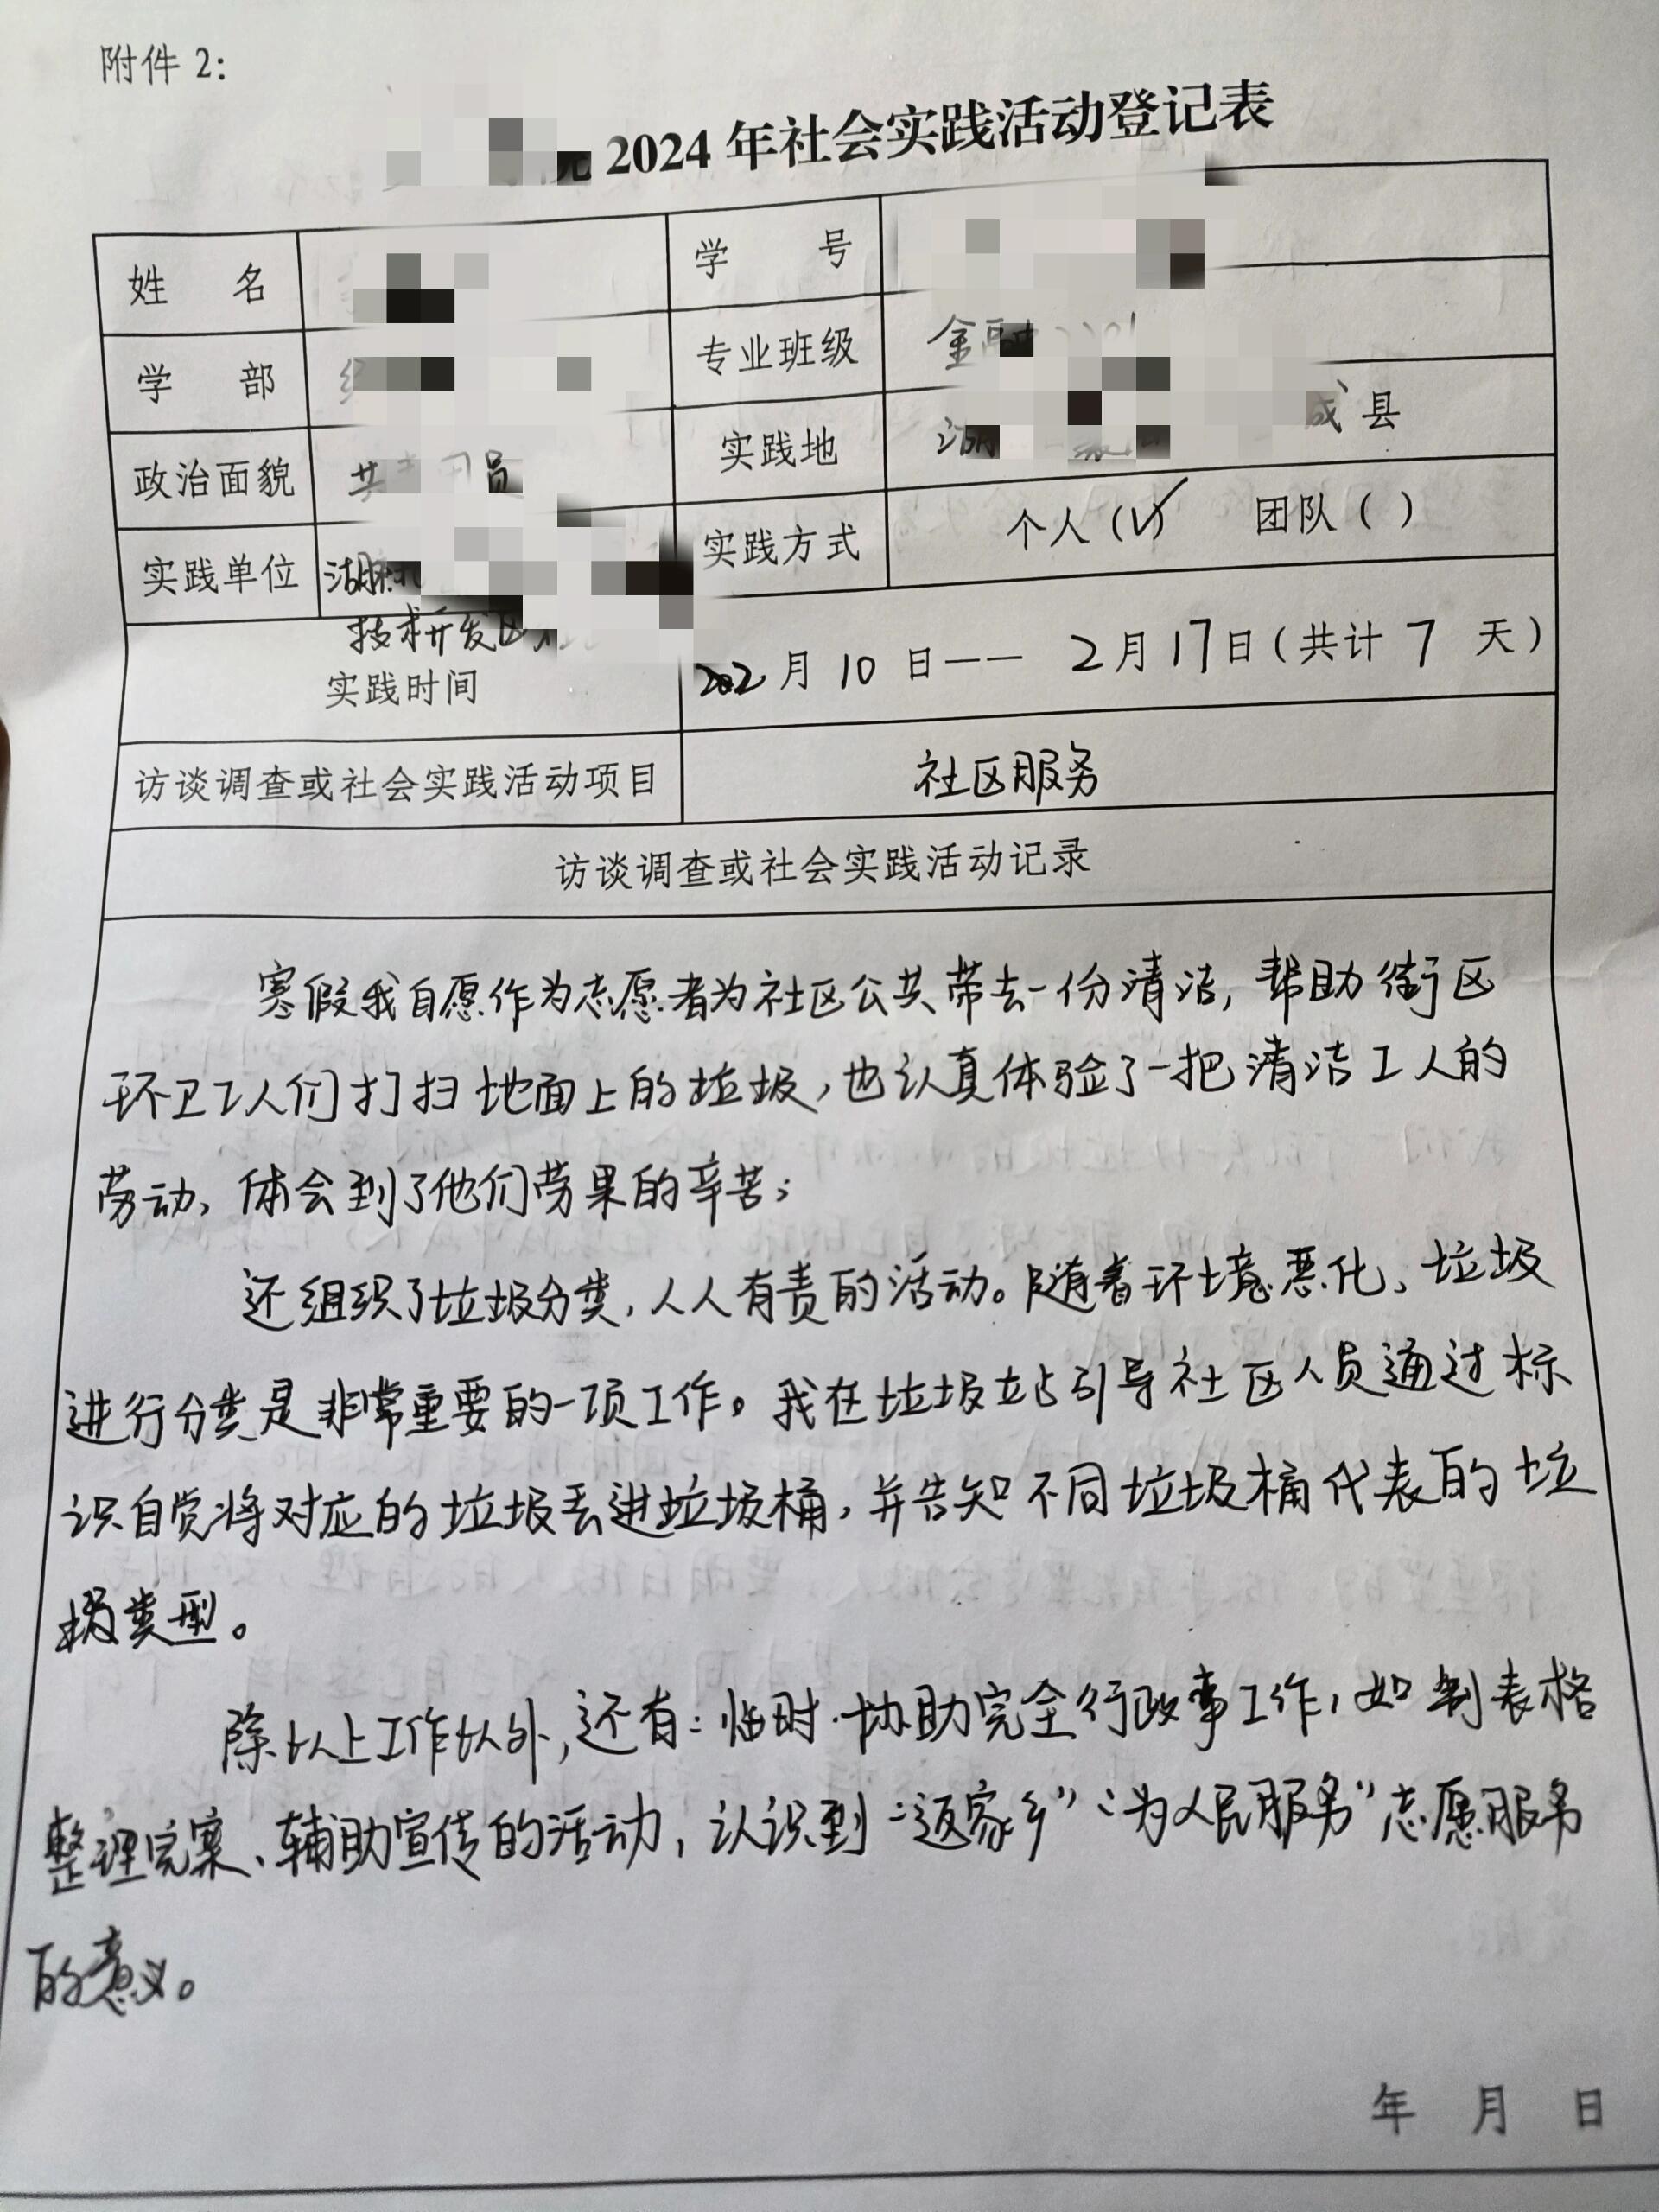 附件 2：
2024 年社会实践活动登记表
姓 名 学 号
学 部 专业班级 金融
政治面貌 共 员 实践地 湖 县
实践单位 湖 实践方式 个人（√） 团队（ ）
技术开发区
实践时间 2月 10 日—— 2月 17日（共计 7 天）
访谈调查或社会实践活动项目 社区服务
访谈调查或社会实践活动记录
寒假我自愿作为志愿者为社区公共带去一份清洁，帮助街区
环卫工人们打扫地面上的垃圾，也认真体验了一把清洁工人的
劳动，体会到了他们劳累的辛苦；
还组织了垃圾分类，人人有责的活动。随着环境恶化、垃圾
进行分类是非常重要的一项工作。我在垃圾站引导社区人员通过标
识自觉将对应的垃圾丢进垃圾桶，并告知不同垃圾桶代表的垃
圾类型。
除以上工作以外，还有：临时协助完全行政事工作，如制表格
整理完案、辅助宣传的活动，认识到“返家乡”“为人民服务”志愿服务
的意义。
年 月 日